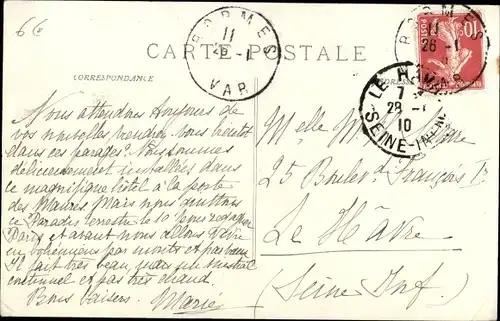 66
CARTE POSTALE
CORRESPONDANCE
BORMES
11
26 -1
VAR
BORMES
11
26 -1
POSTES
10
LE HAVRE
7
28 -1
10
SEINE-INFRE
Nous attendons toujours de
vos nouvelles viendrez vous bientôt
dans ces parages? Nous sommes
délicieusement installées dans
ce magnifique hôtel à la porte
des Maures Mais nous quittons
ce Paradis terrestre le 10 pour
Paris et avant nous allons vivre
en bohémiens par monts et par vaux
Il fait très beau mistral
continuel et pas très chaud.
Bons baisers. Marie
Melle
25 Boulevd François Ier
Le Hâvre
(Seine Inf.)